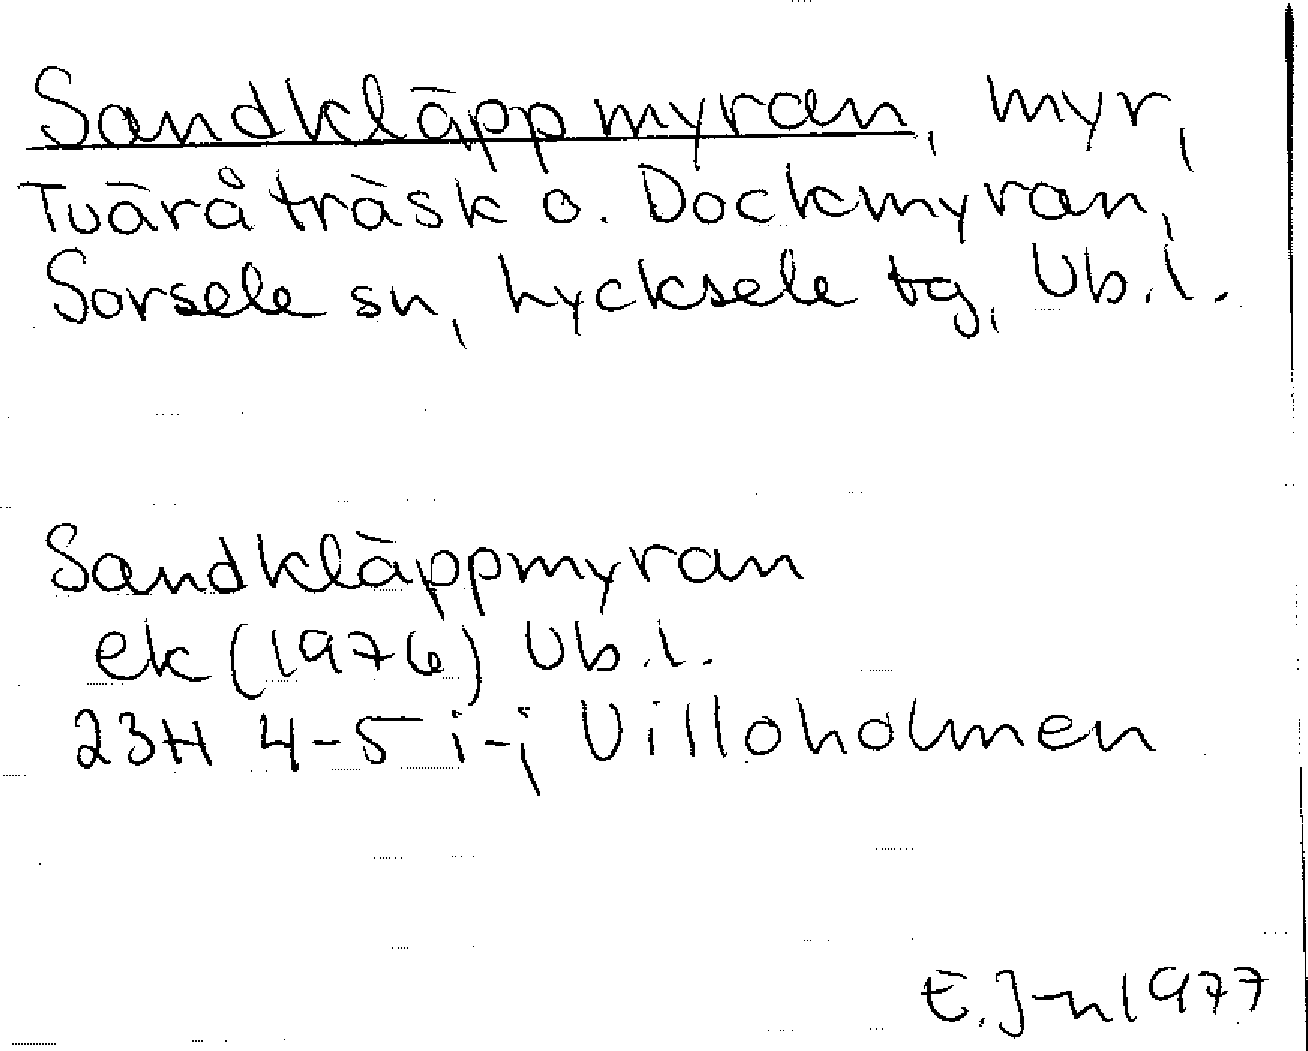 Sandkläppmyran, myr,
Tväråträsk o. Dockmyran,
Sorsele sn, Lycksele tg, Vb.l.
Sandkläppmyran
ek (1976) Vb.l.
23H 4-5 i-j Villoholmen
E. J-n 1977